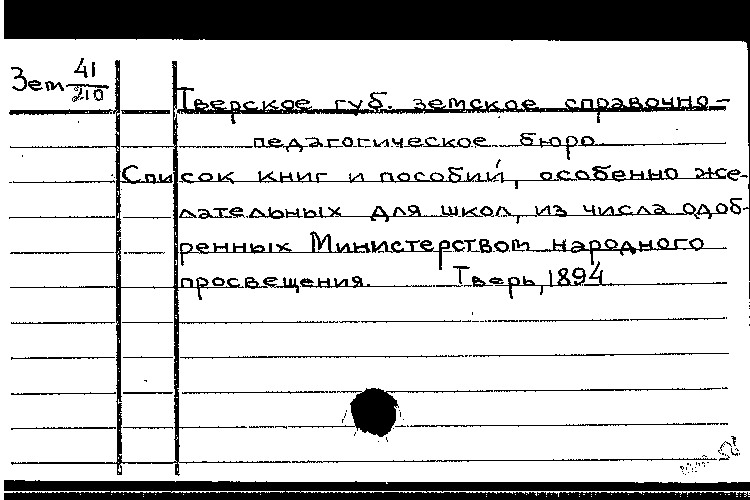 Зем 41/210
Тверское губ. земское справочно-
педагогическое бюро
Список книг и пособий, особенно же-
лательных для школ, из числа одоб-
ренных Министерством народного
просвещения. Тверь, 1894